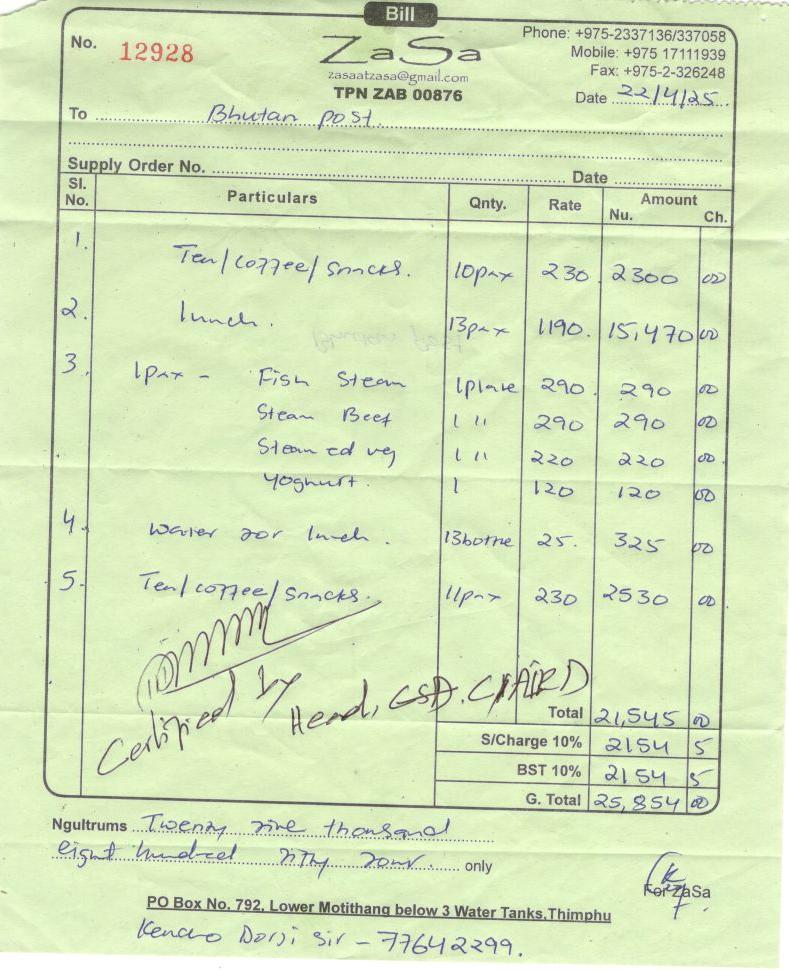 Bill
No. 12928
ZaSa
zasaatzasa@gmail.com
TPN ZAB 00876
Phone: +975-2337136/337058
Mobile: +975 17111939
Fax: +975-2-326248
Date 22/4/25
To Bhutan post
Supply Order No. Date
Sl. No. Particulars Qnty. Rate Amount Nu. Ch.
1. Tea/coffee/snacks. 10pax 230 2300 00
2. lunch. 13pax 1190. 15,470 00
3. 1pax - Fish Steam 1plate 290. 290 00
Steam Beef 1 " 290 290 00
Steamed veg 1 " 220 220 00
Yoghurt. 1 120 120 00
4. water for lunch. 13bottle 25. 325 00
5. Tea/coffee/snacks. 11pax 230 2530 00
Certified by Head, GSD.
Total 21,545 00
S/Charge 10% 2154 5
BST 10% 2154 5
G. Total 25,854 00
Ngultrums Twenty five thousand
eight hundred fifty four only
For ZaSa
PO Box No. 792, Lower Motithang below 3 Water Tanks,Thimphu
Kencho Dorji sir - 77642299.